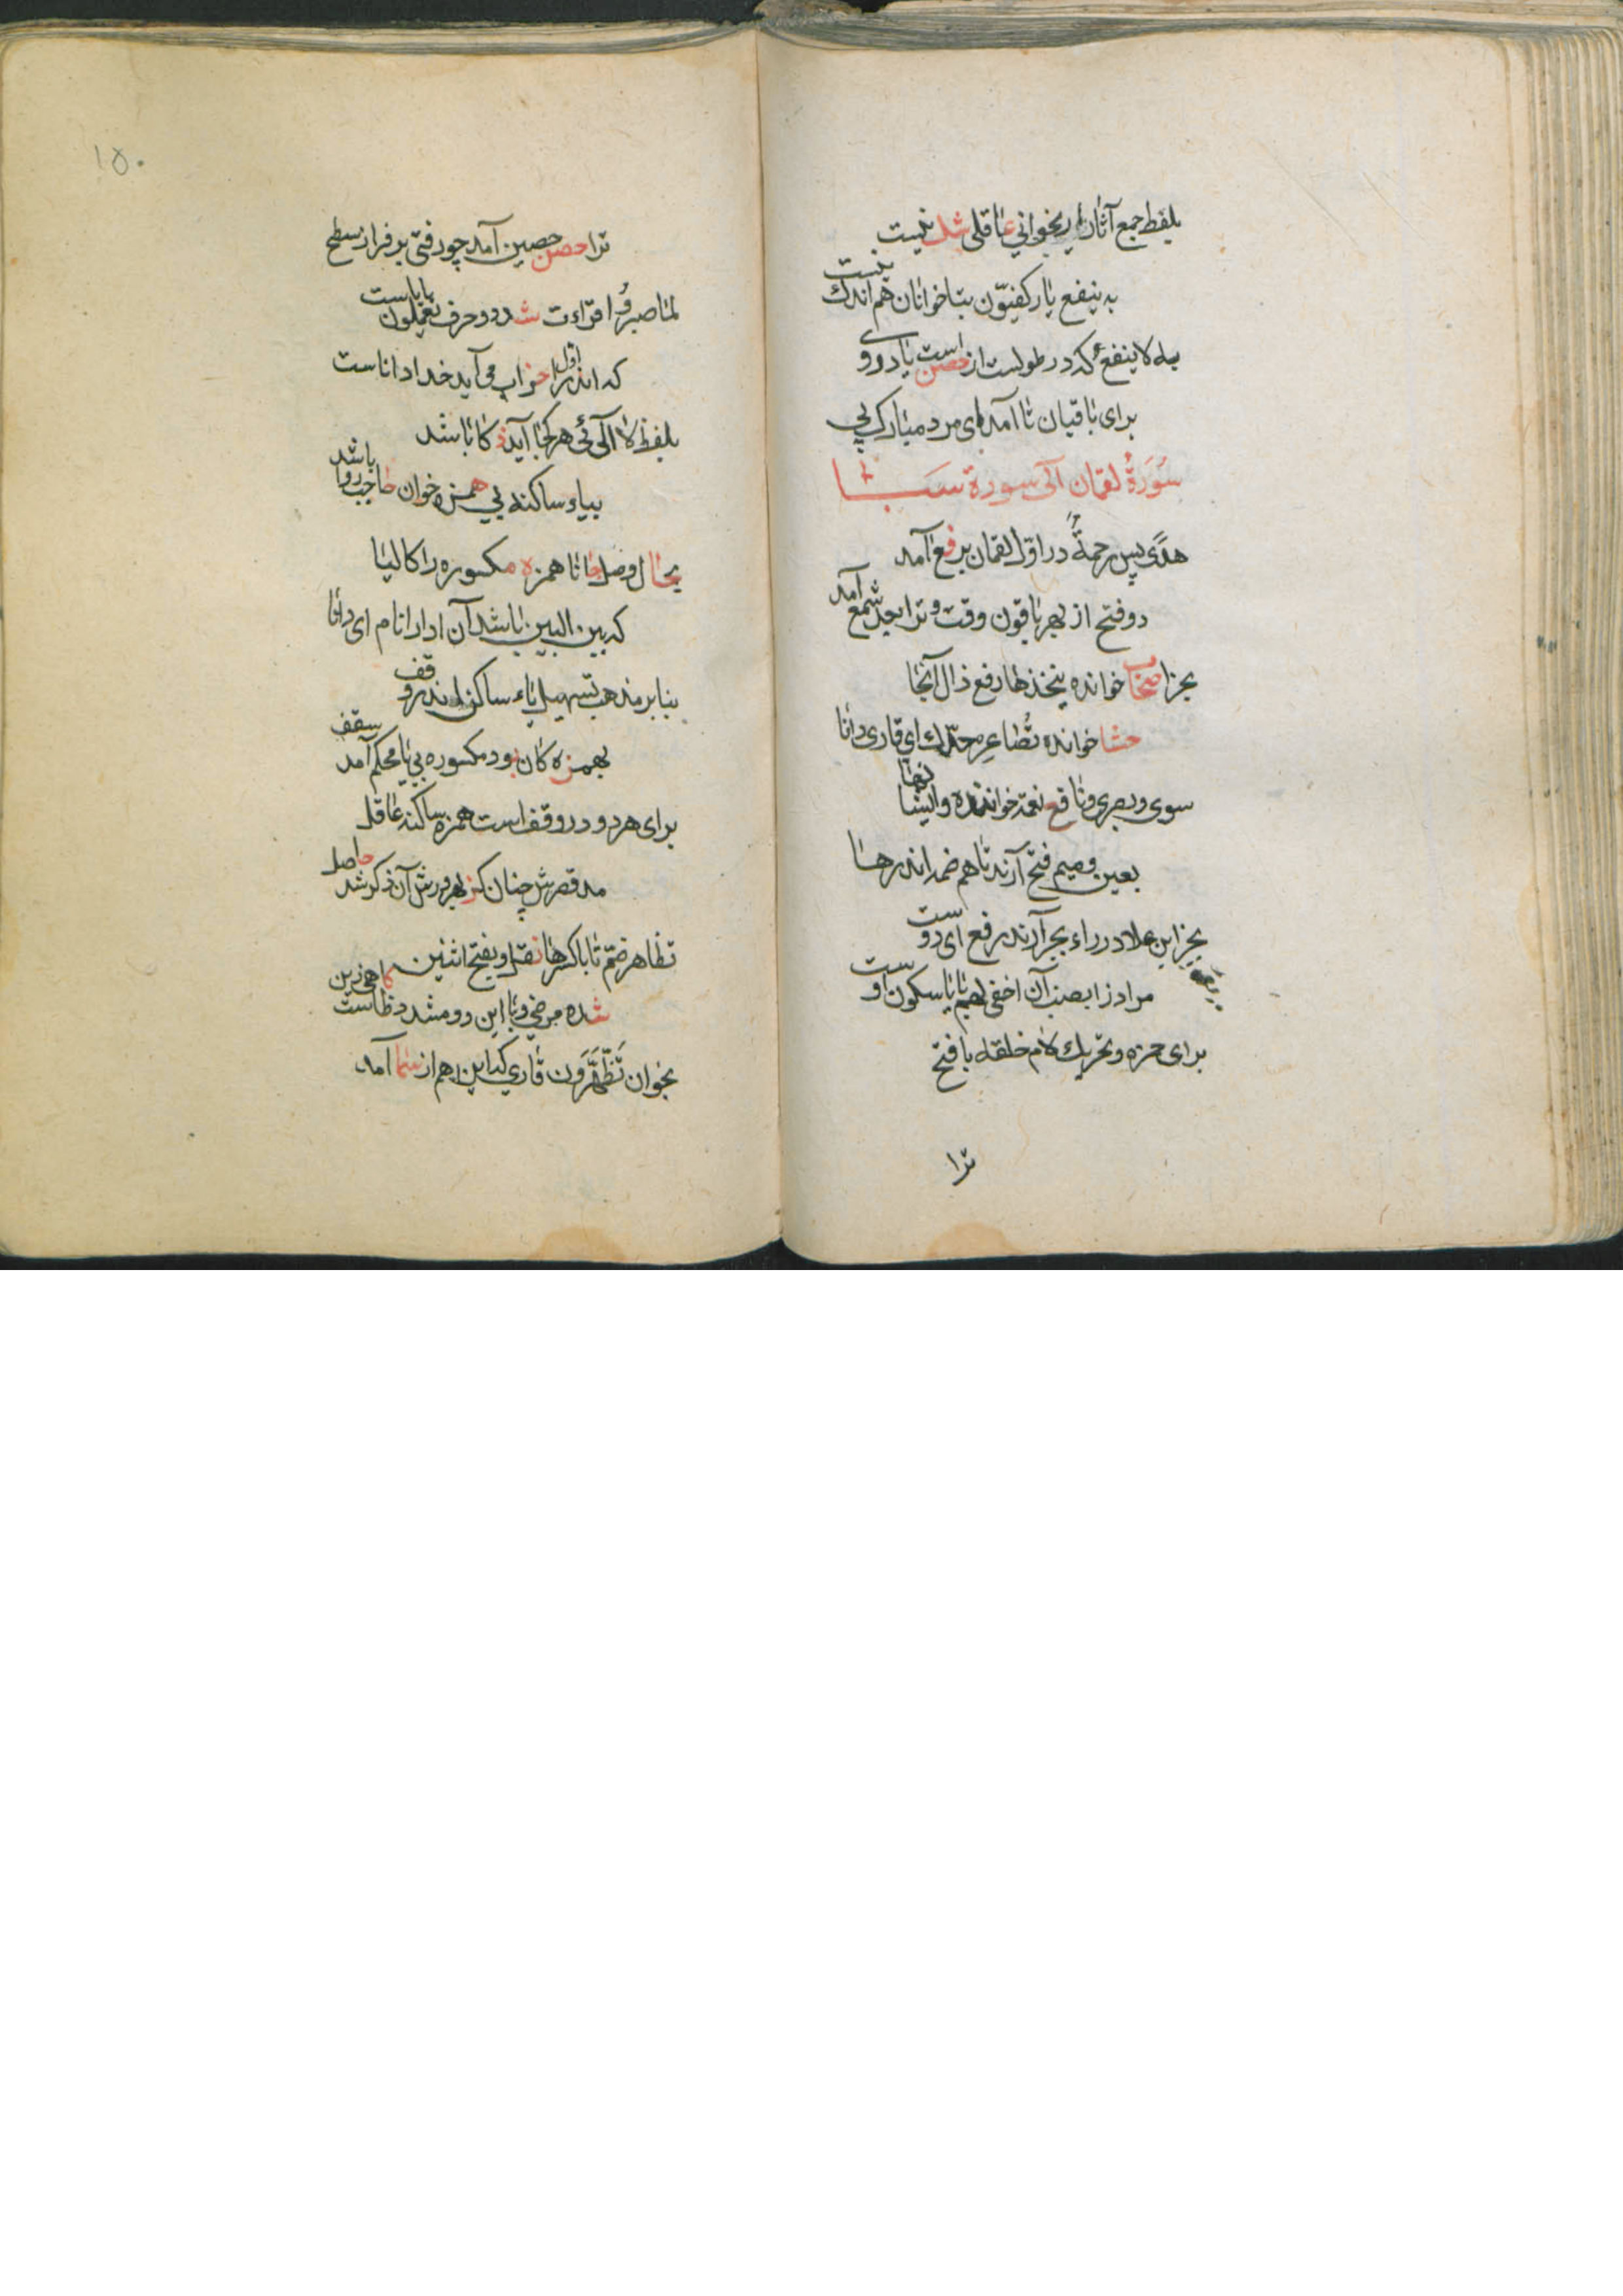 بلفظ جمع آثار ار بخوانی عاقلی شك نیست
به ینفع یا ركفیّون بتا خوانان هم اندك نیست
به لا ینفع كه در طولست از حصن است یا دروی
برای باقیان تا آمد ای مرد مبارك پی
سُوْرَةُ لقمان الی سورة سبا
هدًی پس رحمةٌ در اوّل لقمان برفع آمد
دو فتح از بهر باقون وقت و ترا بجد شمع آمد
بجز اصحاب خوانده یتخذها رفع ذال آنجا
حشا خوانده تُصاعِر مدّك ای قاری دانا
سوی و بصری و نافع نعمة خوانند و اینها
بعین و میم فتح آرند تا هم ضمه اندر ها
بجز ابن علا در راء بحر آرند رفع ای دوست
مراد زا بصب آن اخفی لهم با یا سكون اوست
برای حمزه و تحریك لام خلقه با فتح
ترا
١٥٠
ترا حصن حصین آمد چو رفتی بر فراز سطح
لما صبروا قراءت شد دو حرف تعملون با یاست
كه اندر اول احزاب می آید خدا داناست
بلفظ لا الٓئی هر كجا آید كا باشد
بیاء ساكنه بی همزه خوان حاجب روا باشد
بحال وصل اما همزه مكسوره را كالیا
كه بین البین باشد آن ادا را نام ای دانا
بنابر مذهب تسهیل یاء ساكن اندر وقف
بهمزه كان بود مكسوره بی یا محكم آمد سقف
برای هر دو در وقف است همزه ساكنه عاقل
مد قصرش چنان كز بهر ورش آن ذكر شد حاصل
تظاهر ضمّ تا با كسر ها نقل و بفتح اثنین
شده مرضی و با این دو مشدد ظاست كاهی زین
بخوان تَظَّهَّرَون قاری كه این هم از سما آمد